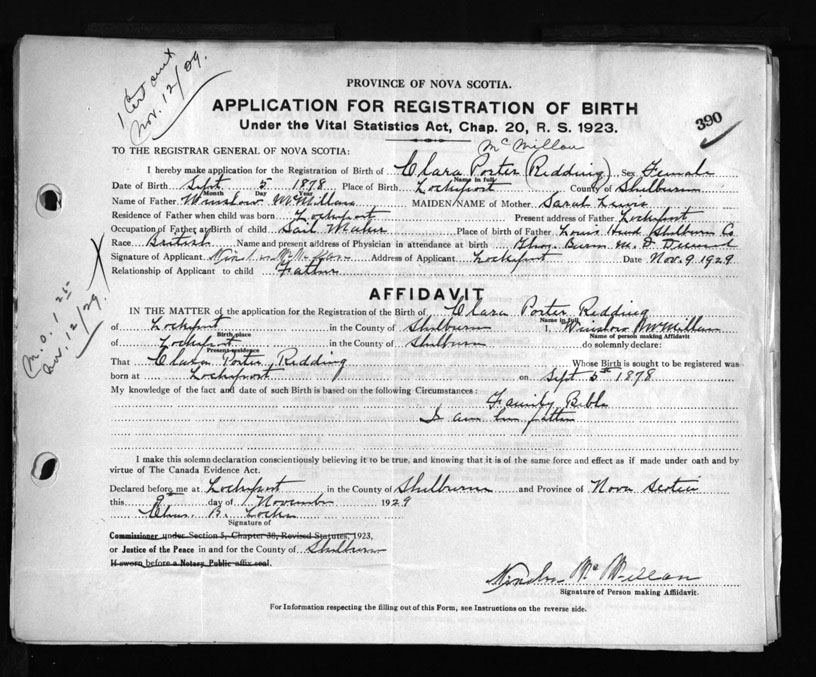 1 Cert
Nov. 12/29.
PROVINCE OF NOVA SCOTIA.
390
APPLICATION FOR REGISTRATION OF BIRTH
Under the Vital Statistics Act, Chap. 20, R. S. 1923.
McMillan
TO THE REGISTRAR GENERAL OF NOVA SCOTIA:
I hereby make application for the Registration of Birth of Clara Porter (Redding) Sex Female
Name in full
Date of Birth Sept. 5 1878 Place of Birth Lockeport County of Shelburne
Month Day Year
Name of Father Winslow McMillan MAIDEN NAME of Mother Sarah Lewis
Residence of Father when child was born Lockeport Present address of Father Lockeport
Occupation of Father at Birth of child Sail Maker Place of birth of Father Louis Head Shelburn Co
Race British Name and present address of Physician in attendance at birth Thos. Burns M. D. Deceased
Signature of Applicant Winslow McMillan Address of Applicant Lockeport Date Nov. 9 1929
Relationship of Applicant to child Father
M.O. 1.25
Nov. 12/29.
AFFIDAVIT
IN THE MATTER of the application for the Registration of the Birth of Clara Porter Redding
Name in full
of Lockeport in the County of Shelburn I, Winslow McMillan
Birth place Name of person making Affidavit
of Lockeport in the County of Shelburn do solemnly declare:
Present residence
That Clara Porter, Redding Whose Birth is sought to be registered was
born at Lockeport on Sept 5th 1878
My knowledge of the fact and date of such Birth is based on the following Circumstances:
Family Bible
I am her father
I make this solemn declaration conscientiously believing it to be true, and knowing that it is of the same force and effect as if made under oath and by
virtue of The Canada Evidence Act.
Declared before me at Lockeport in the County of Shelburne and Province of Nova Scotia
this 9th day of November 1929
Chas. B. Locke
Signature of
Commissioner under Section 5, Chapter 38, Revised Statutes, 1923,
or Justice of the Peace in and for the County of Shelburne
If sworn before a Notary Public affix seal.
Winslow McMillan
Signature of Person making Affidavit.
For Information respecting the filling out of this Form, see Instructions on the reverse side.